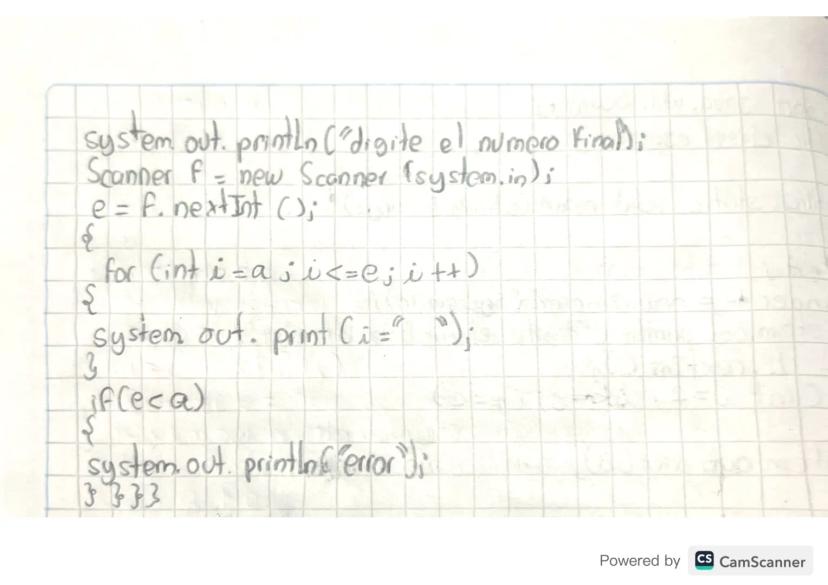 system out. println ("digite el numero final");
Scanner f = new Scanner (system.in);
e = f. nextInt ();
{
for (int i = a ; i <= e ; i ++)
{
system out. print ( i = "   ");
}
if(e<a)
{
system.out. println("error");
} } } }
Powered by CS CamScanner